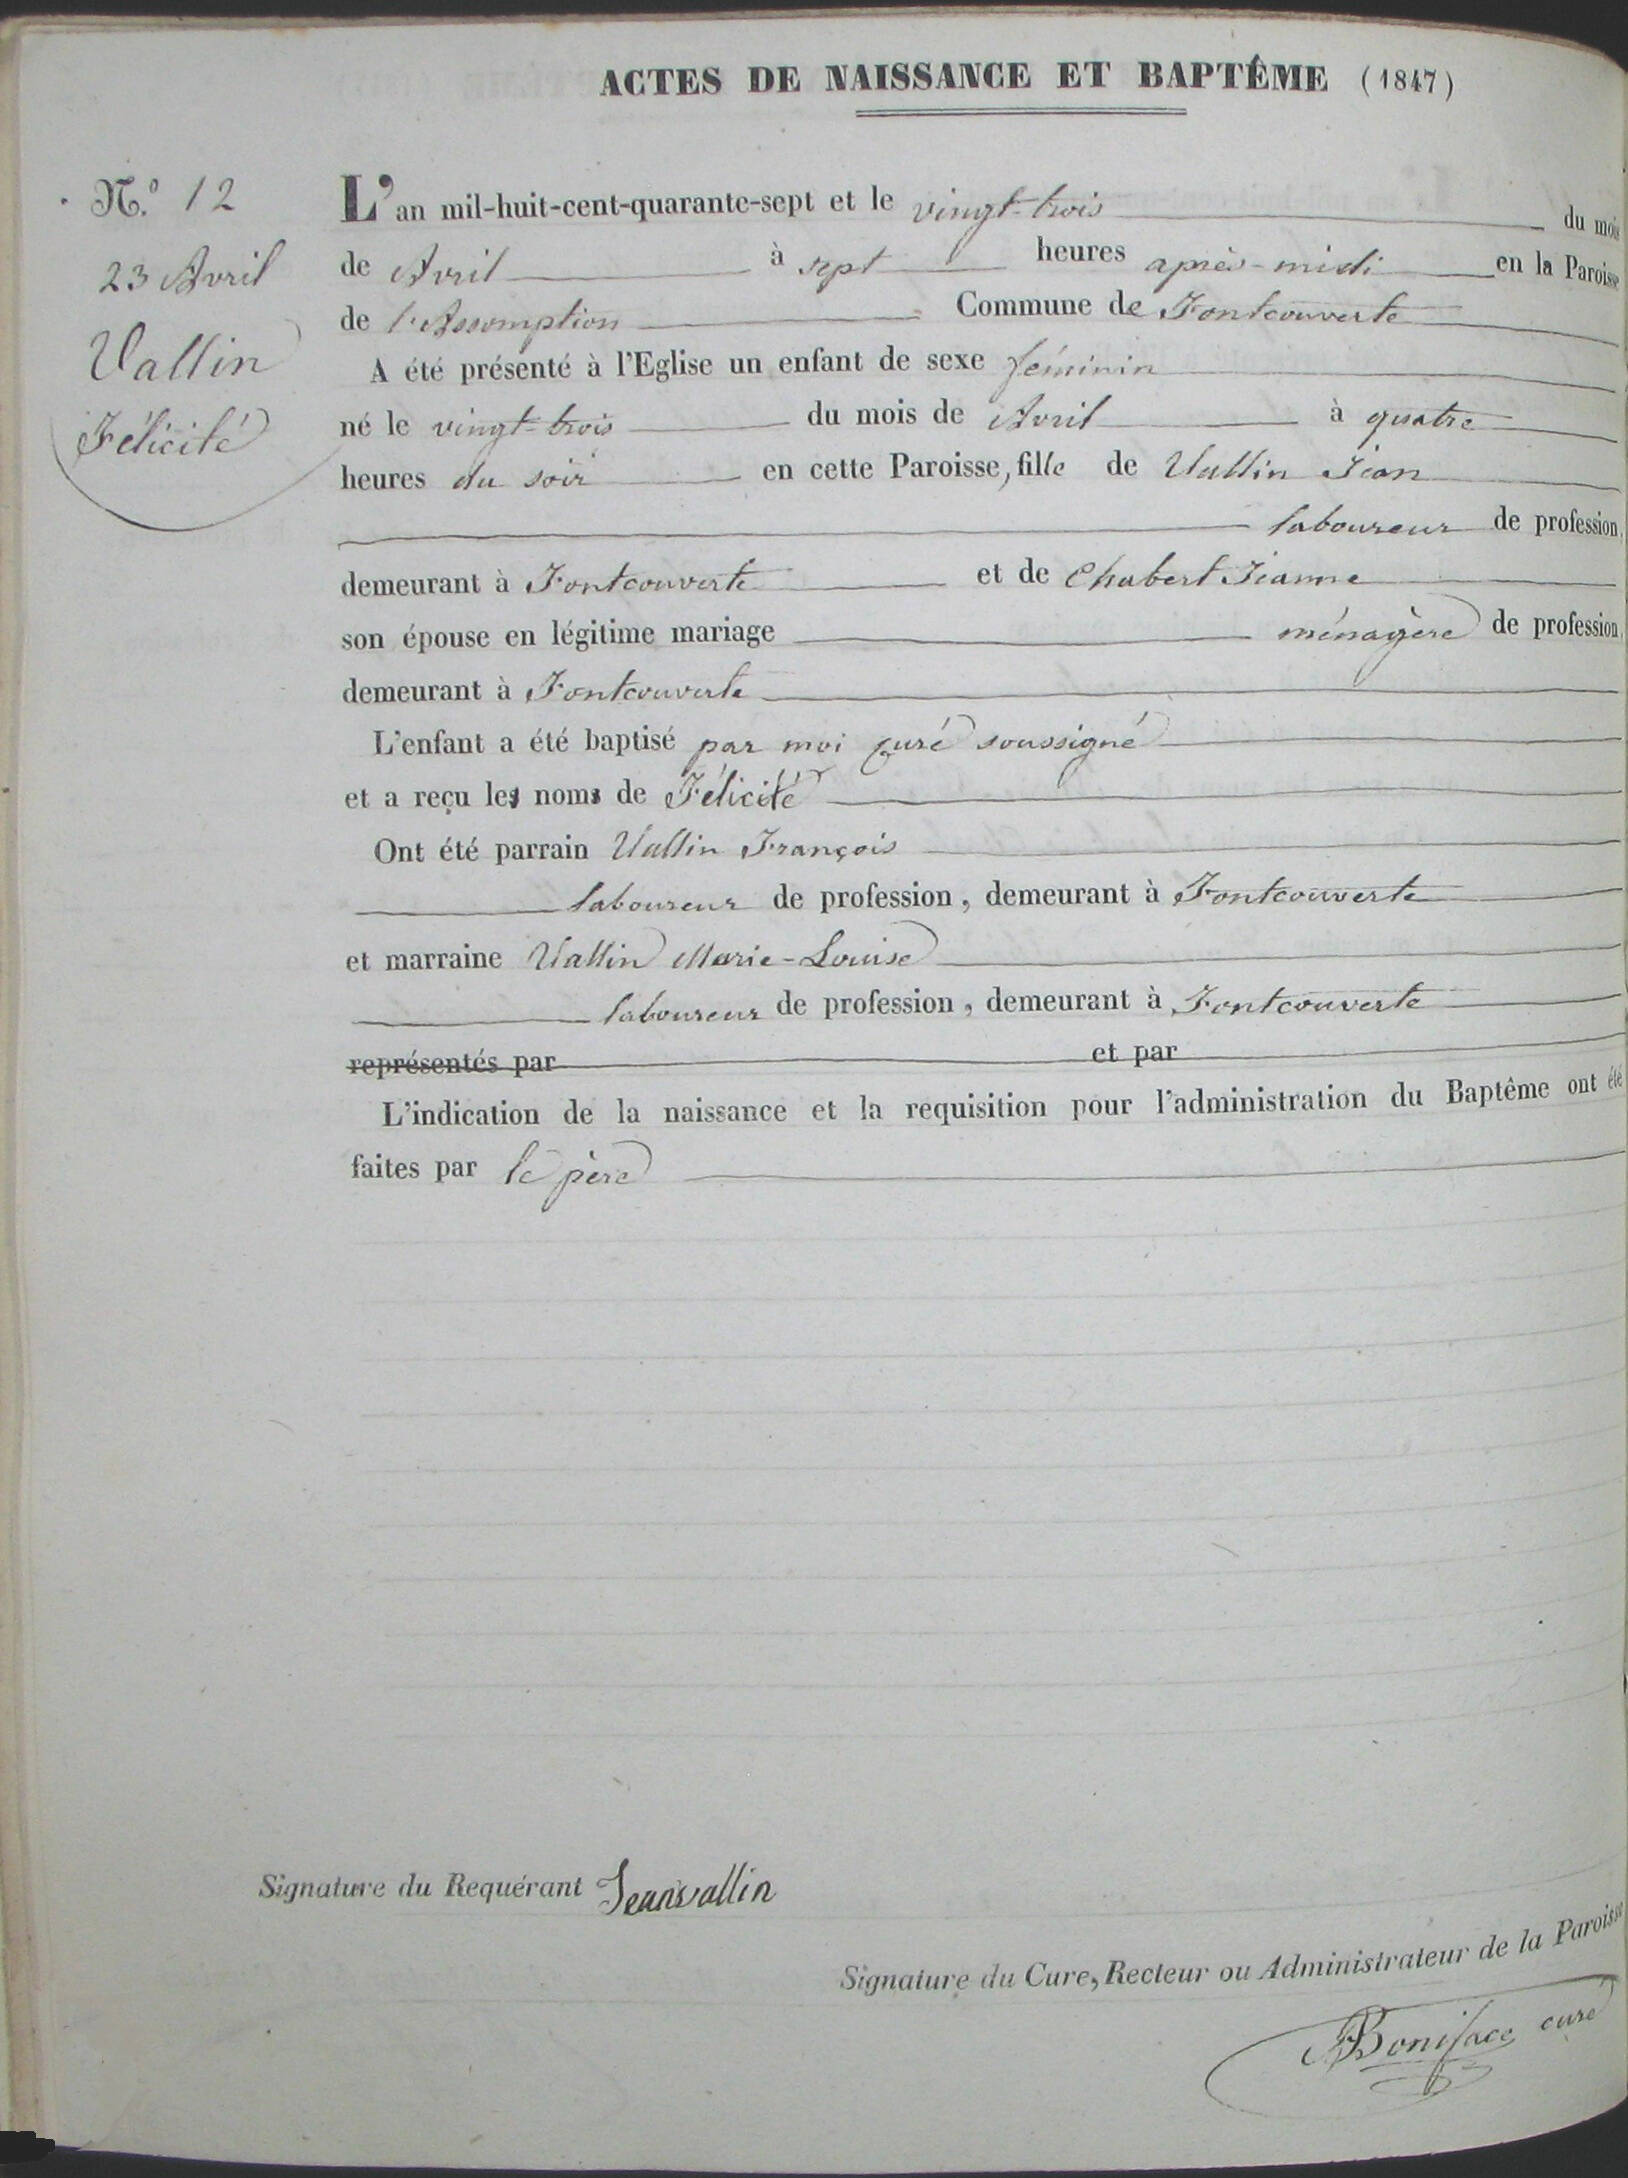 ACTES DE NAISSANCE ET BAPTÊME (1847)
N.º 12
23 Avril
Vallin
Félicité
L'an mil-huit-cent-quarante-sept et le vingt-trois du mois
de Avril à sept heures après-midi en la Paroisse
de l'Assomption Commune de Fontcouverte
A été présenté à l'Eglise un enfant de sexe féminin
né le vingt-trois du mois de Avril à quatre
heures du soir en cette Paroisse, fille de Vallin Jean
laboureur de profession,
demeurant à Fontcouverte et de Chabert Jeanne
son épouse en légitime mariage ménagère de profession,
demeurant à Fontcouverte
L'enfant a été baptisé par moi curé soussigné
et a reçu les noms de Félicité
Ont été parrain Vallin François
laboureur de profession, demeurant à Fontcouverte
et marraine Vallin Marie-Louise
laboureur de profession, demeurant à Fontcouverte
représentés par et par
L'indication de la naissance et la requisition pour l'administration du Baptême ont été
faites par le père
Signature du Requérant Jean vallin
Signature du Cure, Recteur ou Administrateur de la Paroisse
Boniface curé